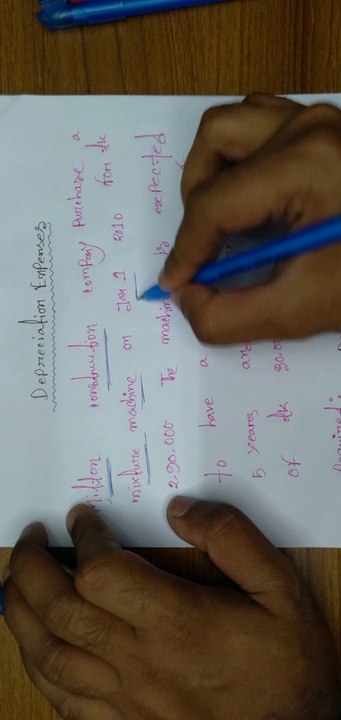 Depreciation Expenses
Milton construction company purchase a
mixture machine on Jan 1 2010 for tk
2.90.000 The machin is expected
to have a
5 years and
of tk 20.0
Required: